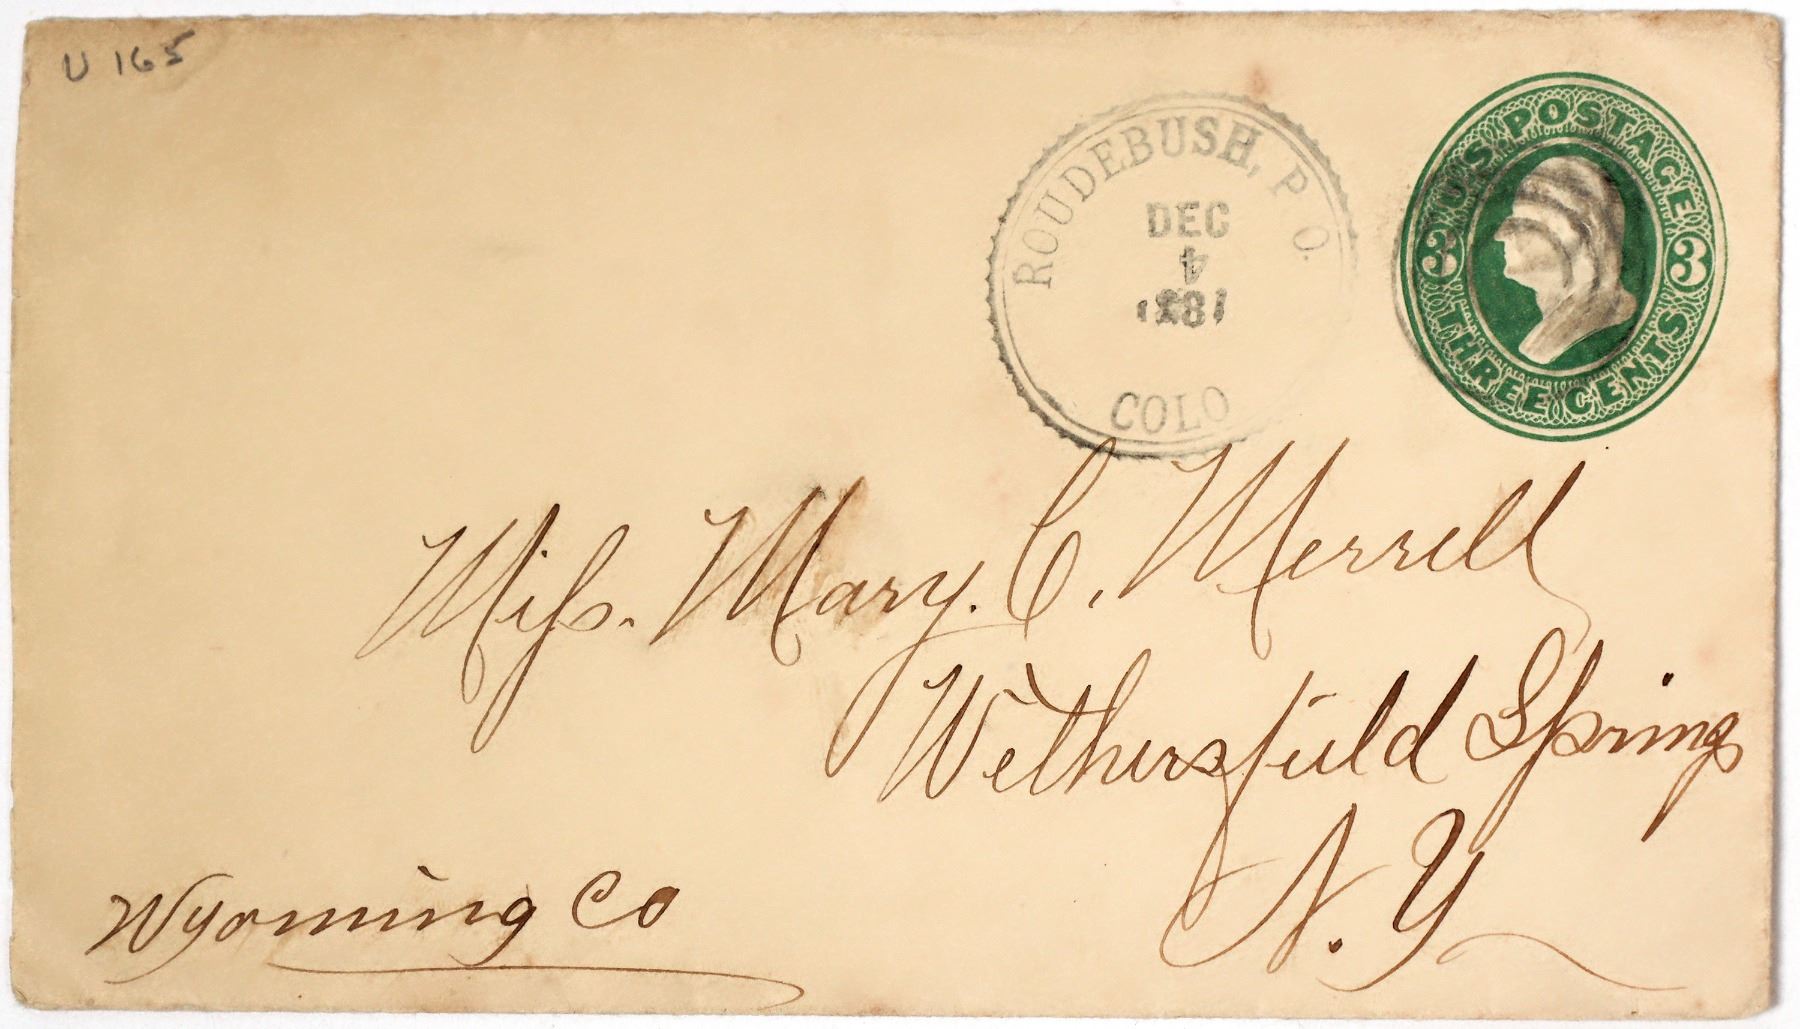 U 165
ROUDEBUSH, P. O.
DEC
4
1881
COLO
U.S POSTAGE
3 3
THREE CENTS
Miss. Mary. C. Merrell
Wethersfield Springs
N. Y
Wyoming Co